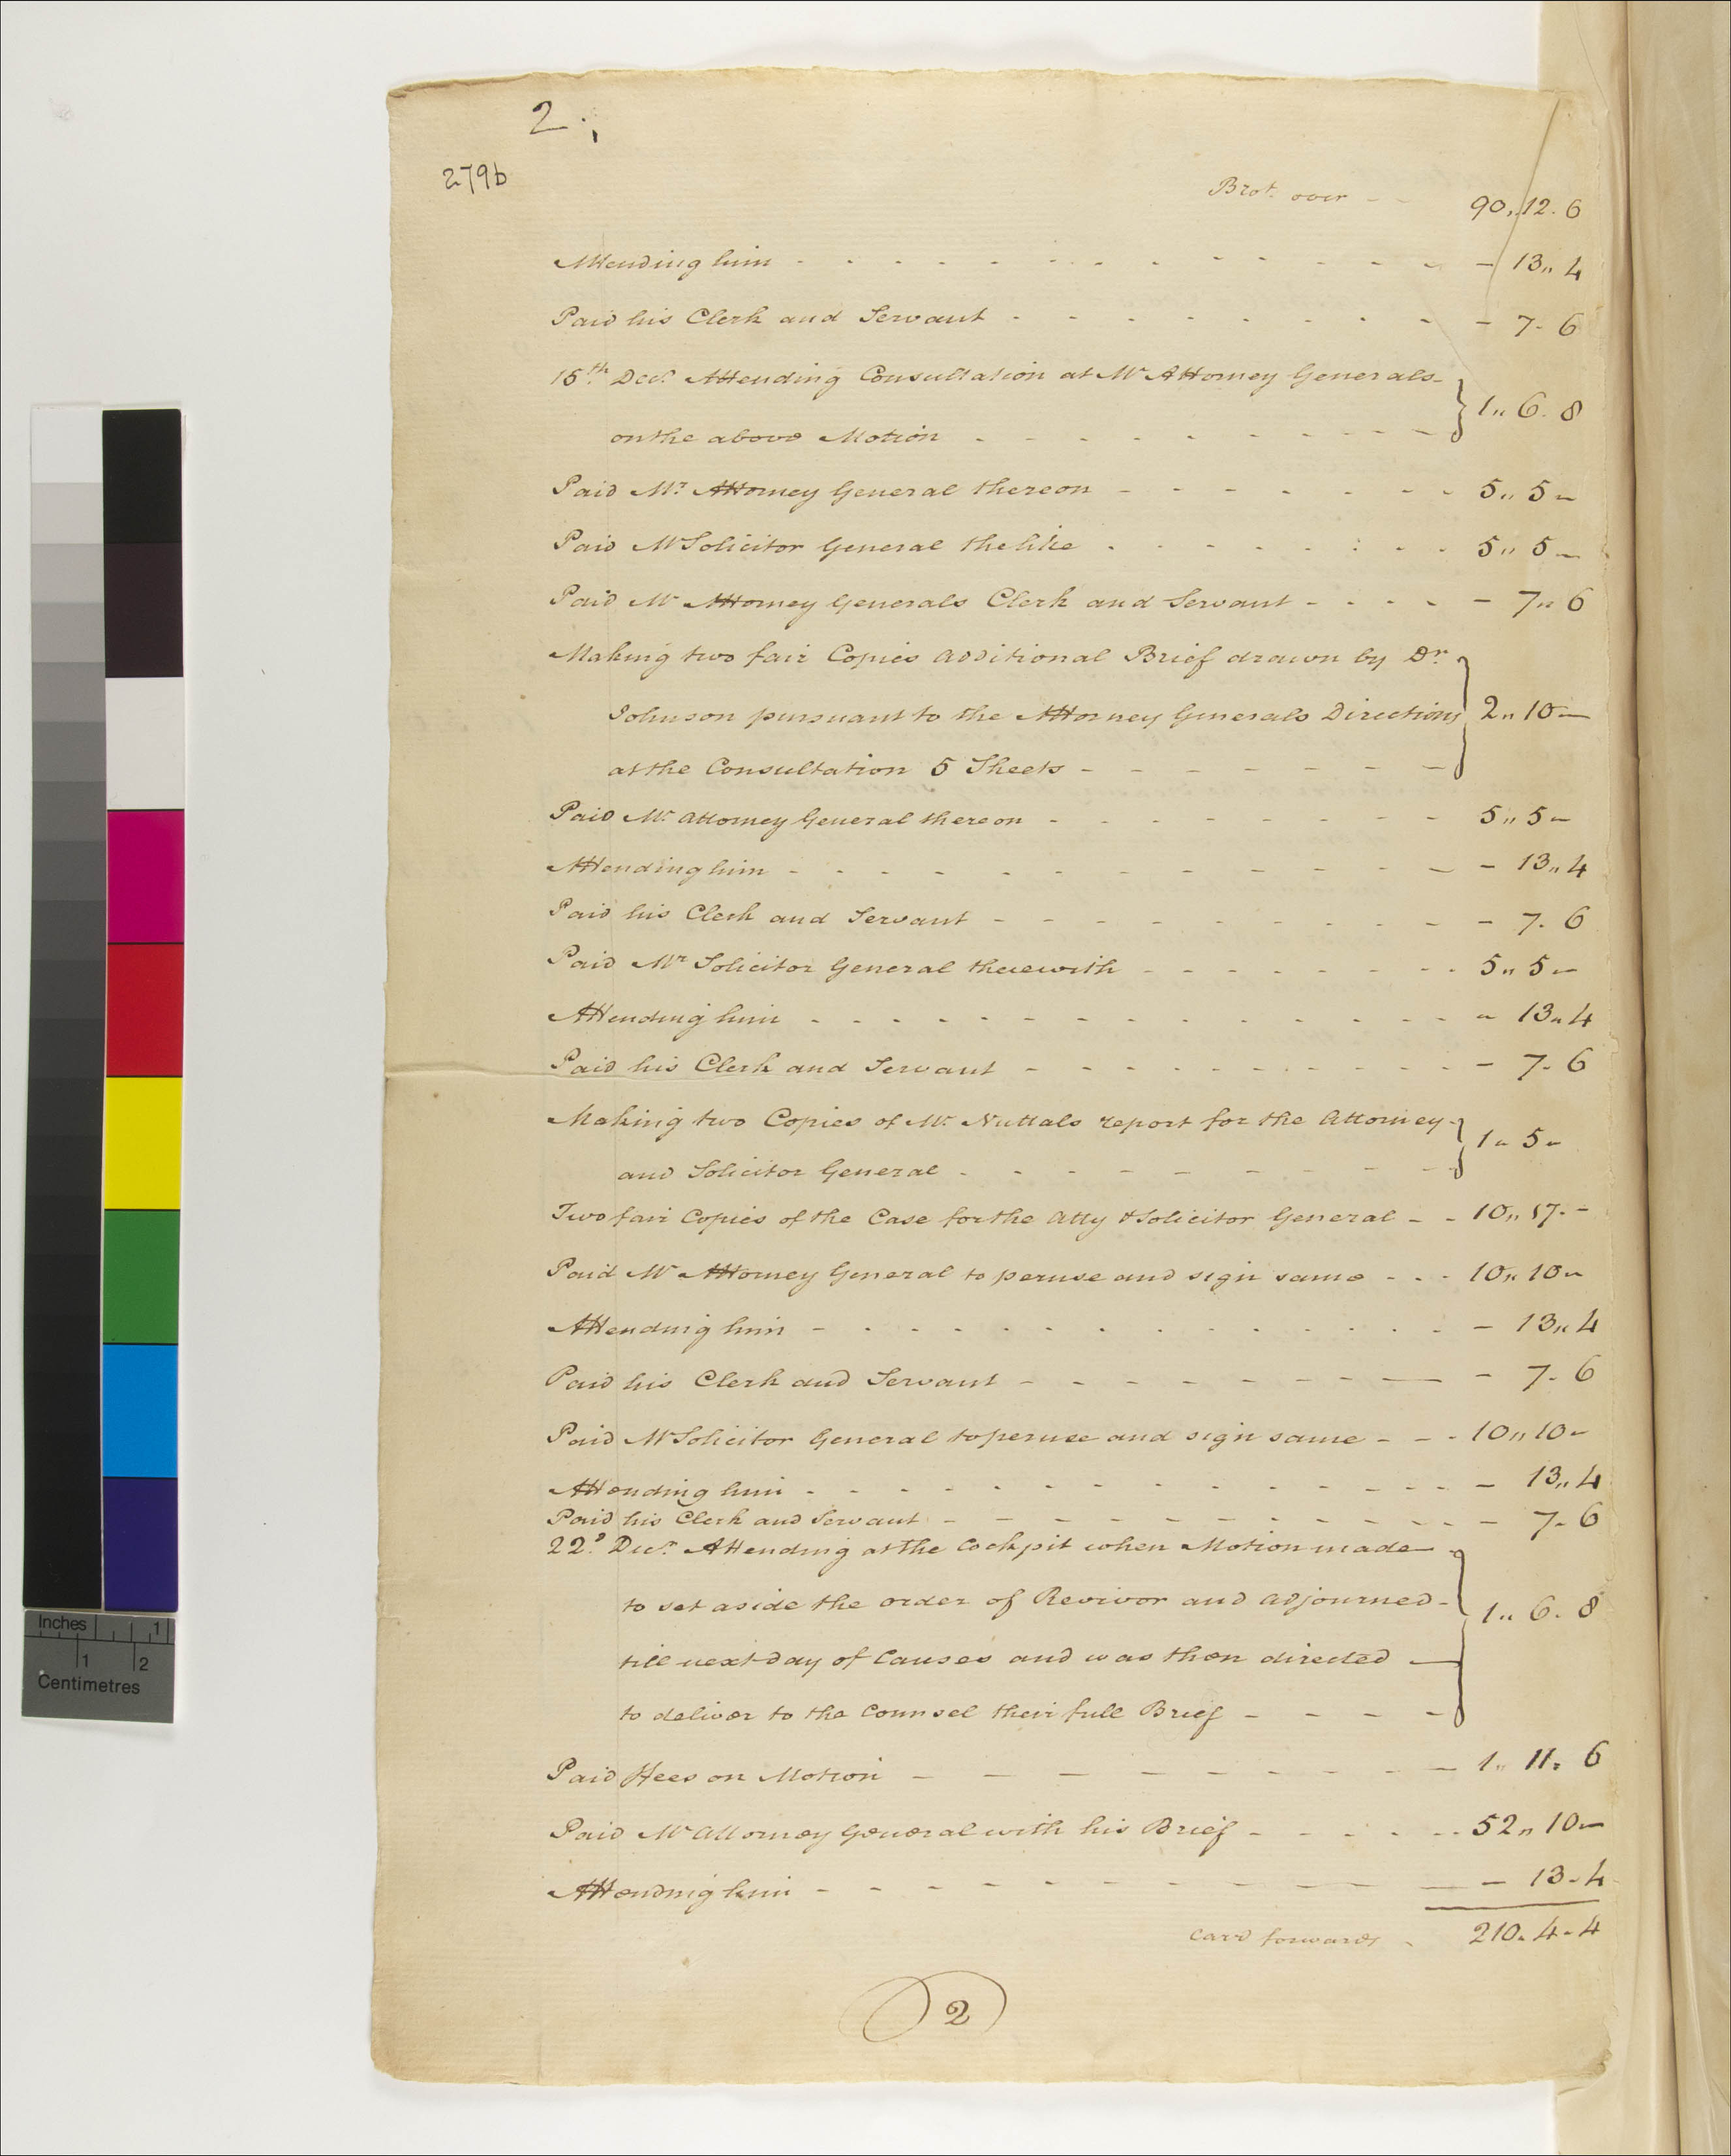 2.
279b
Brot. over - - 90,,12.6
Attending him - - - - - - - - - - - - - - 13,,4
Paid his Clerk and Servant - - - - - - - - - 7-6
15th. Decr. Attending Consultation at Mr Attorney Generals-
on the above Motion - - - - - - - - - 1,,6.8
Paid Mr. Attorney General thereon - - - - - - - 5,,5-
Paid Mr Solicitor General the like - - - - - - - 5,,5-
Paid Mr Attorney Generals Clerk and Servant - - - - - 7,,6
Making two fair Copies additional Brief drawn by Dr.
Johnson pursuant to the Attorney Generals Directions 2,,10-
at the Consultation 5 Sheets - - - - - - -
Paid Mr. Attorney General thereon - - - - - - - - 5,,5-
Attending him - - - - - - - - - - - - - 13,,4
Paid his Clerk and Servant - - - - - - - - - - 7.6
Paid Mr Solicitor General therewith - - - - - - - 5,,5-
Attending him - - - - - - - - - - - - - - 13,,4
Paid his Clerk and Servant - - - - - - - - - - 7-6
Making two Copies of Mr. Nuttals report for the Attorney-
and Solicitor General - - - - - - - - - 1-5-
Two fair Copies of the Case for the Atty & Solicitor General - - 10,,17.-
Paid Mr Attorney General to peruse and sign same - - - 10,,10-
Attending him - - - - - - - - - - - - - - 13,,4
Paid his Clerk and Servant - - - - - - - - - - 7-6
Paid Mr Solicitor General to peruse and sign same - - - 10,,10-
Attending him - - - - - - - - - - - - - - 13,,4
Paid his Clerk and Servant - - - - - - - - - - - 7-6
22d. Decr. Attending at the Cockpit when Motion made-
to set aside the order of Revivor and adjourned- 1,,6.8
till next day of Causes and was then directed -
to deliver to the Counsel their full Brief - - - -
Paid ffees on Motion - - - - - - - - - - 1,,11.6
Paid Mr Attorney General with his Brief - - - - - 52,,10-
Attending him - - - - - - - - - - - - - 13-4
Carrd forwards - 210.4-4
2
Inches 1
1 2
Centimetres